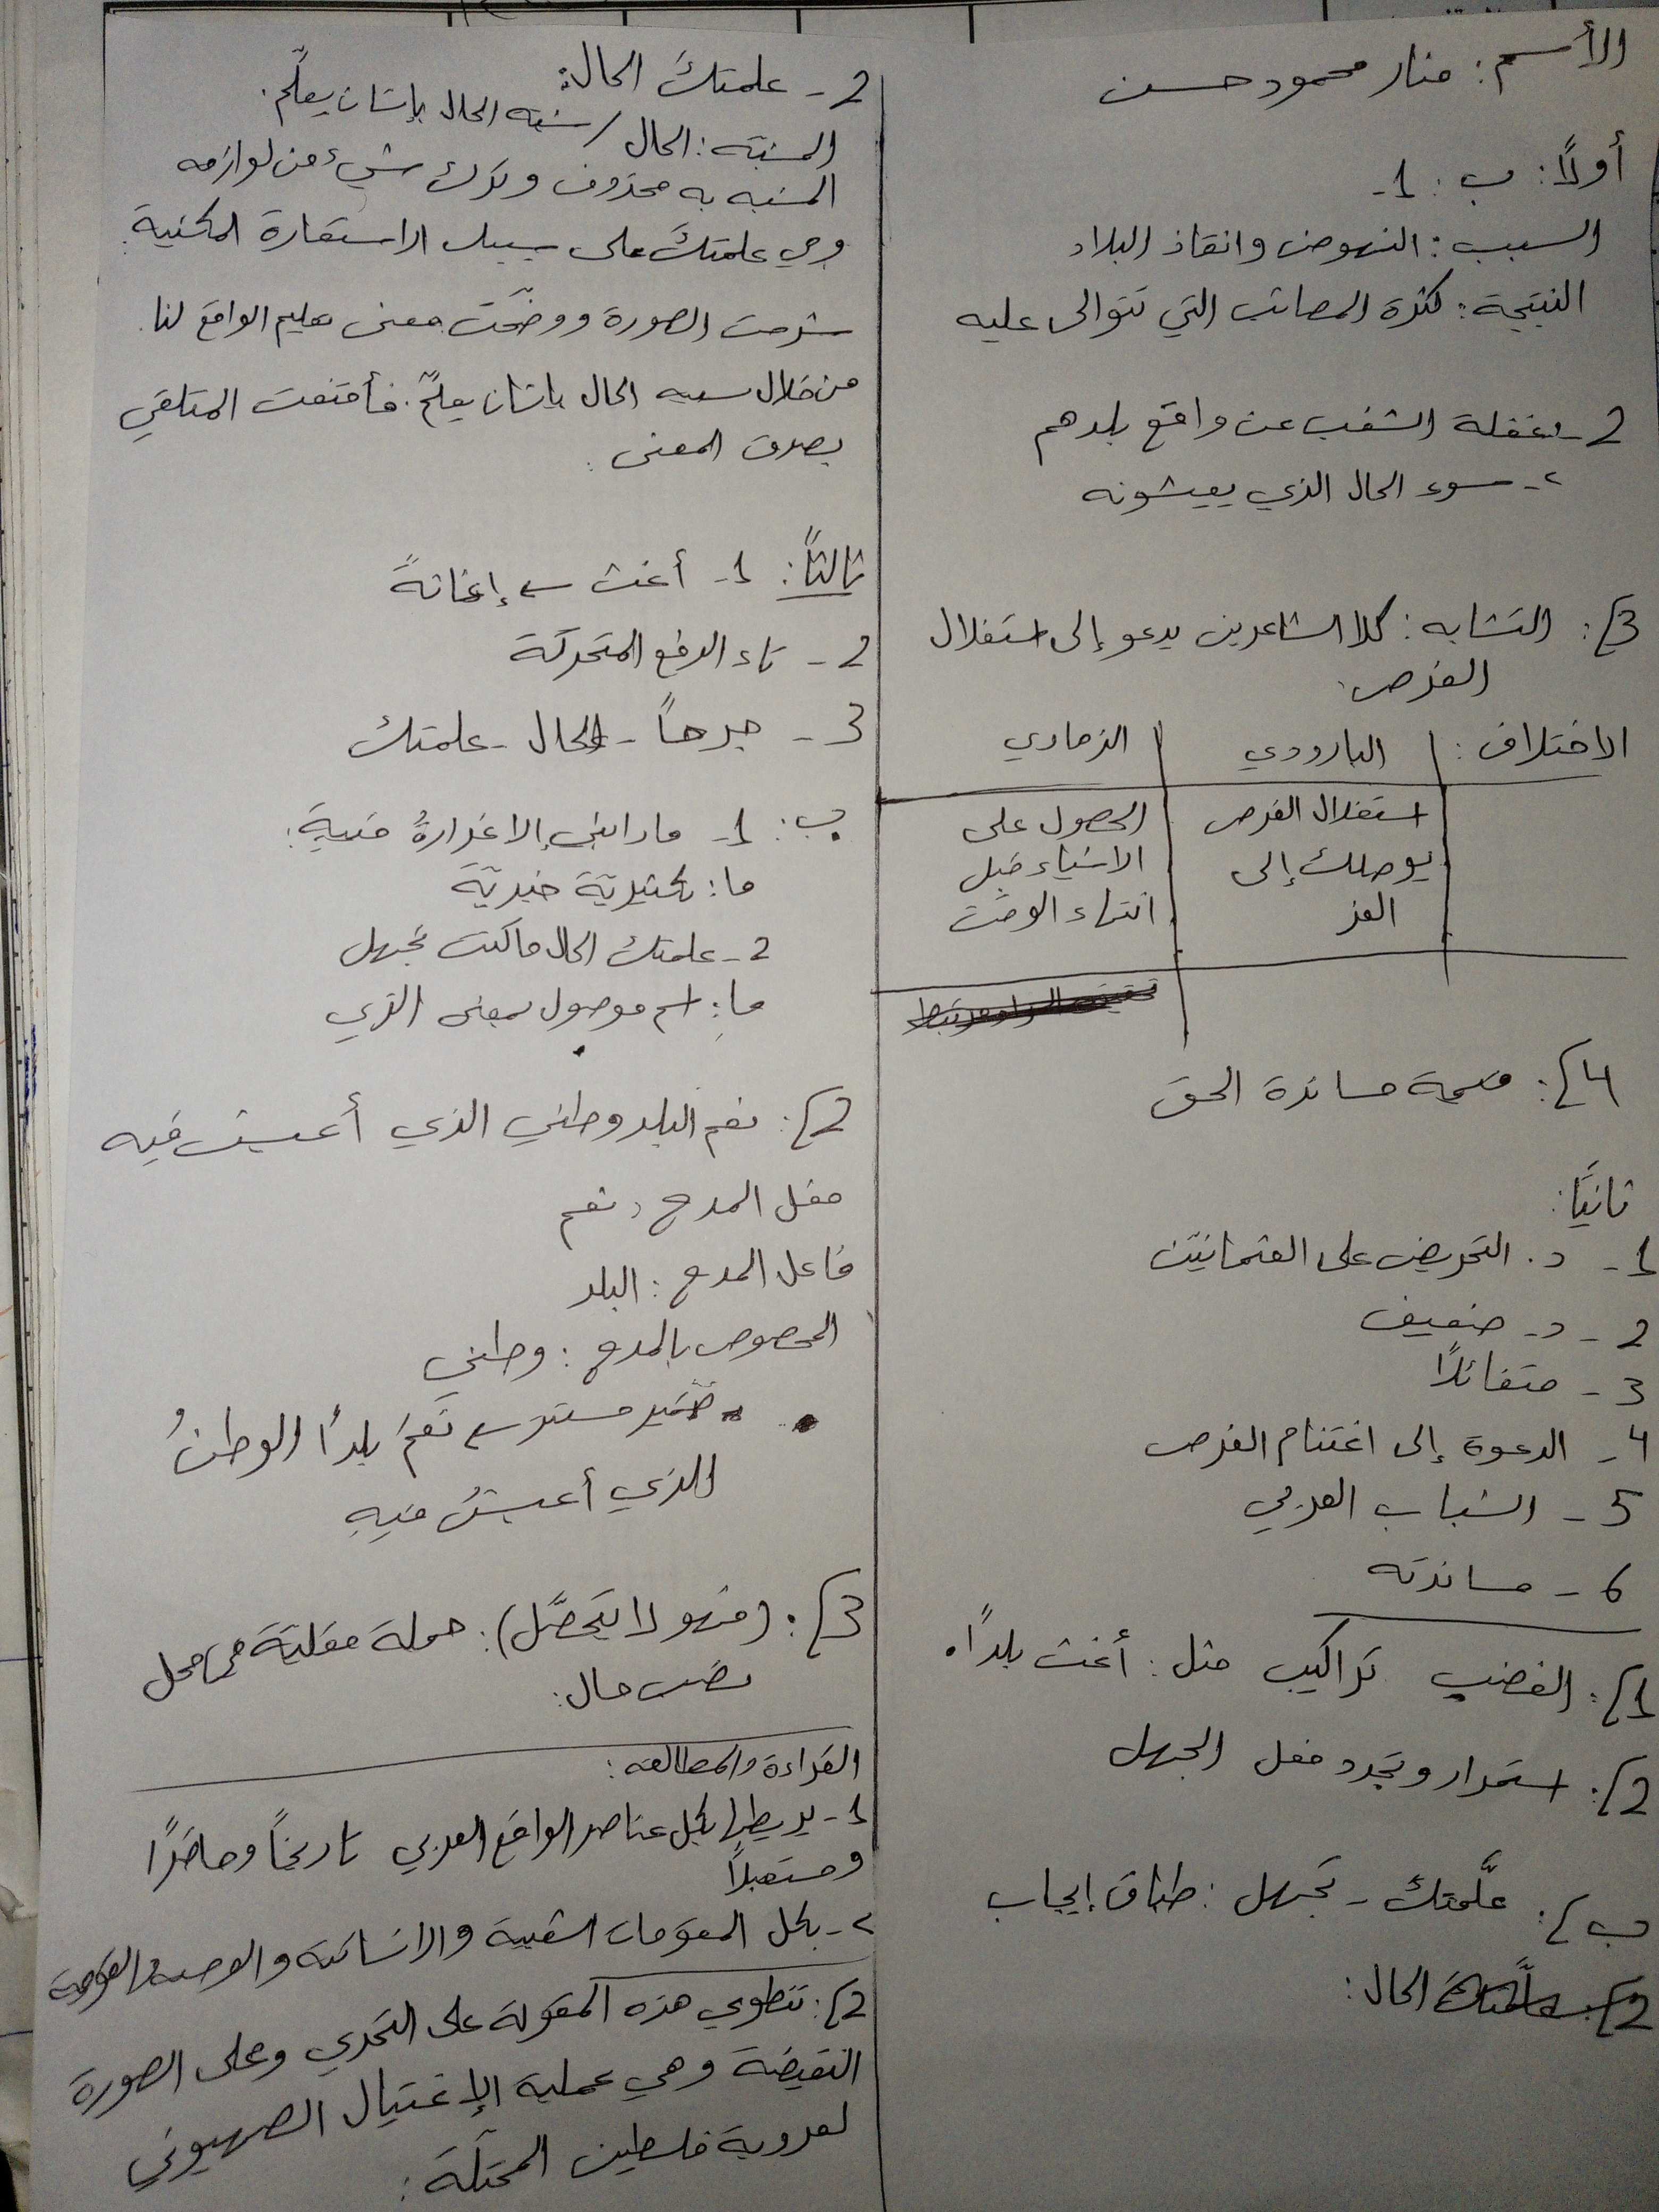 الأسم: منار محمود حسن
أولاً: ب: 1-
السبب: النهوض وانقاذ البلاد
النتيجة: كثرة المصائب التي تتوالى عليه
2- غفلة الشعب عن واقع بلدهم
٢- سوء الحال الذي يعيشونه
3): التشابه: كلا الشاعرين يدعو إلى استغلال
الفرص.
الاختلاف: البارودي الزهاوي
استغلال الفرص الحصول على
يوصلك إلى الاشياء قبل
العز انتهاء الوقت
4): قيمة مساندة الحق
ثانيًا:
1- د. التحريض على العثمانيّين
2- د- ضعيف
3- متفائلًا
4- الدعوة إلى اغتنام الفرص
5- الشباب العربي
6- مساندته
1): الغضب تراكيب مثل: أغث بلداً.
2): استمرار وتجدد فعل الجهل
ب): علَّمتك - تجهل: طباق إيجاب
الحال:
2- علمتكَ الحال:
المشبه: الحال / شبه الحال بإنسان يعلّم.
المشبه به محذوف وترك شيء من لوازمه
وهي علمتكَ على سبيل الاستعارة المكنية.
شرحت الصورة ووضّحت معنى تعليم الواقع لنا.
من خلال شبه الحال بإنسان يعلّم. فأقنعت المتلقي
بصدق المعنى.
ثالثاً: 1- أغث ← إغاثةً
2- تاء الرفع المتحركة
3- جرحاً - الحال - علمتك
ب: 1- ما رابني إلا غرارةُ فتيةٍ:
ما:
2- علمتك الحال ما كنت تجهل
ما: اسم موصول بمعنى الذي
2): نعم البلد وطني الذي أعيش فيه
فعل المدح: نعم
فاعل المدح: البلد
المخصوص بالمدح: وطني
- ضمير مستتر ← نعمَ بلداً الوطنُ
الذي أعيشُ فيهِ
3): (فهو لا يتحصَّل): جملة فعلية في محل
نصب حال:
القراءة والمطالعة:
1- يربطها بكل عناصر الواقع العربي تاريخاً وحاضرًا
ومستقبلاً
٢- بكل المقومات الشعبية والانسانية والقومية
2): تنطوي هذه المقولة على التحدي وعلى الصورة
النقيضة وهي عملية الإغتيال الصهيوني
لعروبة فلسطين المحتلّة: